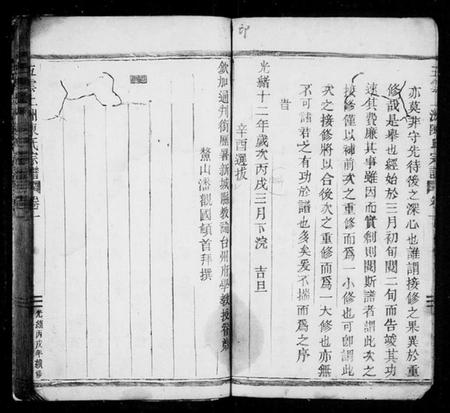 亦莫非守先待後之深心也誰謂接修之果異於重
修哉是舉也經始於三月初旬閱二旬而告竣其功
速其費廉其事雖因而實創則閱斯譜者謂此次之
接修僅以補前次之重修而為一小修也可即謂此
次之接修將以合後次之重修而為一大修也亦無
不可諸君之有功於譜也多矣爰不揣而為之序
旹
光緒十二年歲次丙戌三月下浣 吉旦
辛酉選拔
欽加通判銜歷署新城縣教諭台州府學教授
鰲山潘觀國頓首拜撰
氏宗譜 卷一
光緒丙戌年續修
印